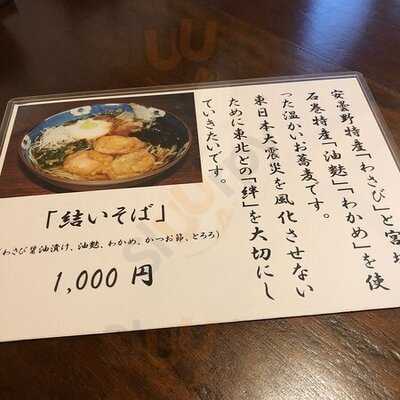 安曇野特産「わさび」と宮城
石巻特産「油麩」「わかめ」を使
った温かいお蕎麦です。
東日本大震災を風化させない
ために東北との「絆」を大切にし
ていきたいです。
「結いそば」
(わさび醤油漬け、油麩、わかめ、かつお節、とろろ)
1,000 円